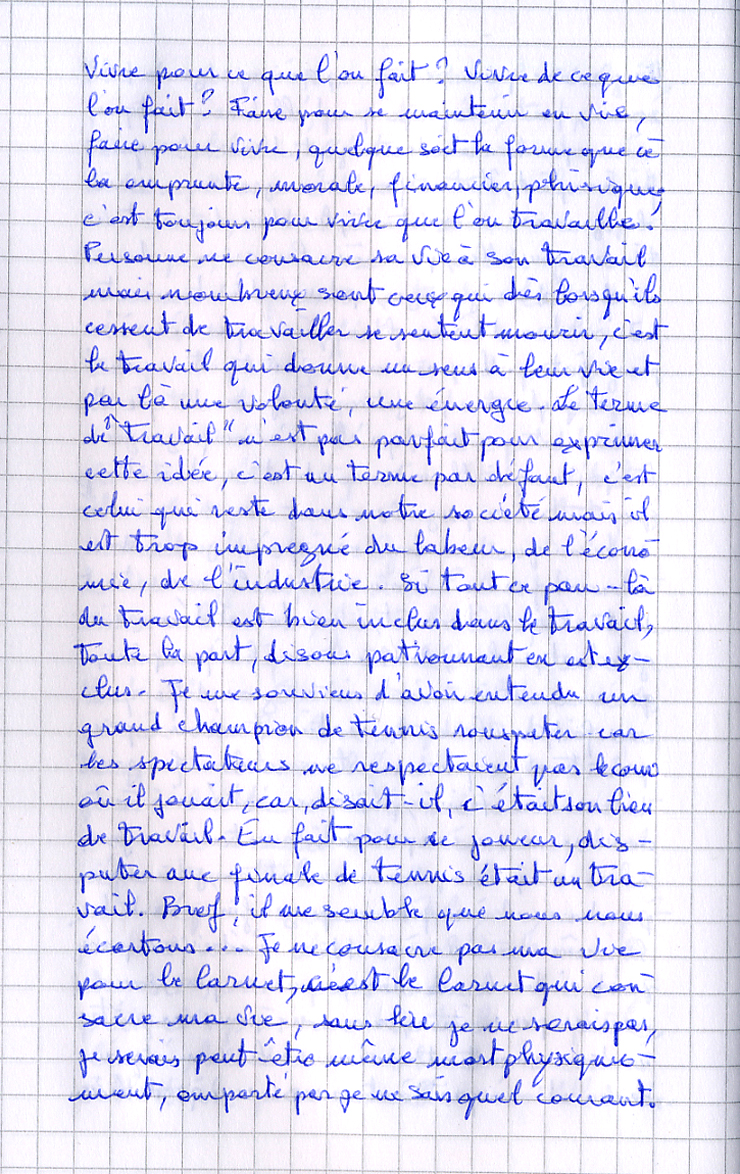 Vivre pour ce que l'on fait? Vivre de ce que
l'on fait? Faire pour se maintenir en vie,
faire pour vivre, quelque soit la forme que ce
la emprunte, morale, financier, phisique,
c'est toujours pour vivre que l'on travaille!
Personne ne consacre sa vie à son travail
mais nombreux sont ceux qui dès lorsqu'ils
cessent de travailler se sentent mourir, c'est
le travail qui donne un sens à leur vie et
par là une volonté, une énergie. Le terme
de "travail" n'est pas parfait pour exprimer
cette idée, c'est un terme par défaut, c'est
celui qui reste dans notre société mais il
est trop impregné du labeur, de l'écono
mie, de l'industrie. Si tout ce pan-là
du travail est bien inclus dans le travail,
toute la part, disons patronnant en est ex-
clus. Je me souviens d'avoir entendu un
grand champion de tennis rouspeter car
les spectateurs ne respectaient pas le court
où il jouait, car, disait-il, c'était son lieu
de travail. En fait pour ce joueur, dis-
puter une finale de tennis était un tra-
vail. Bref, il me semble que nous nous
écartons... Je ne consacre pas ma vie
pour le carnet, c'est le carnet qui con
sacre ma vie, sans lui je ne serais pas,
je serais peut-être même mort physique-
ment, emporté par je ne sais quel courant.